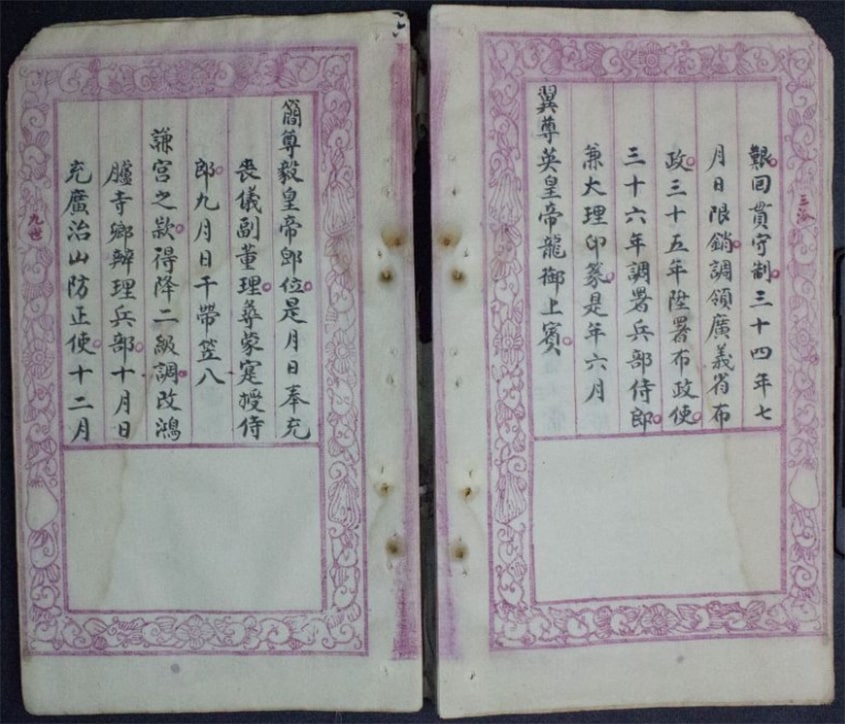 艱回貫守制三十四年七
月日限銷調領廣義省布
政三十五年陞署布政使
三十六年調署兵部侍郎
兼大理印篆是年六月
翼尊英皇帝龍御上賓
簡尊毅皇帝卽位是月日奉充
喪儀副董理尋蒙寔授侍
郎九月日干帶笠八
謙宮之欵得降二級調改鴻
臚寺卿辦理兵部十月日
充廣治山防正使十二月
九世